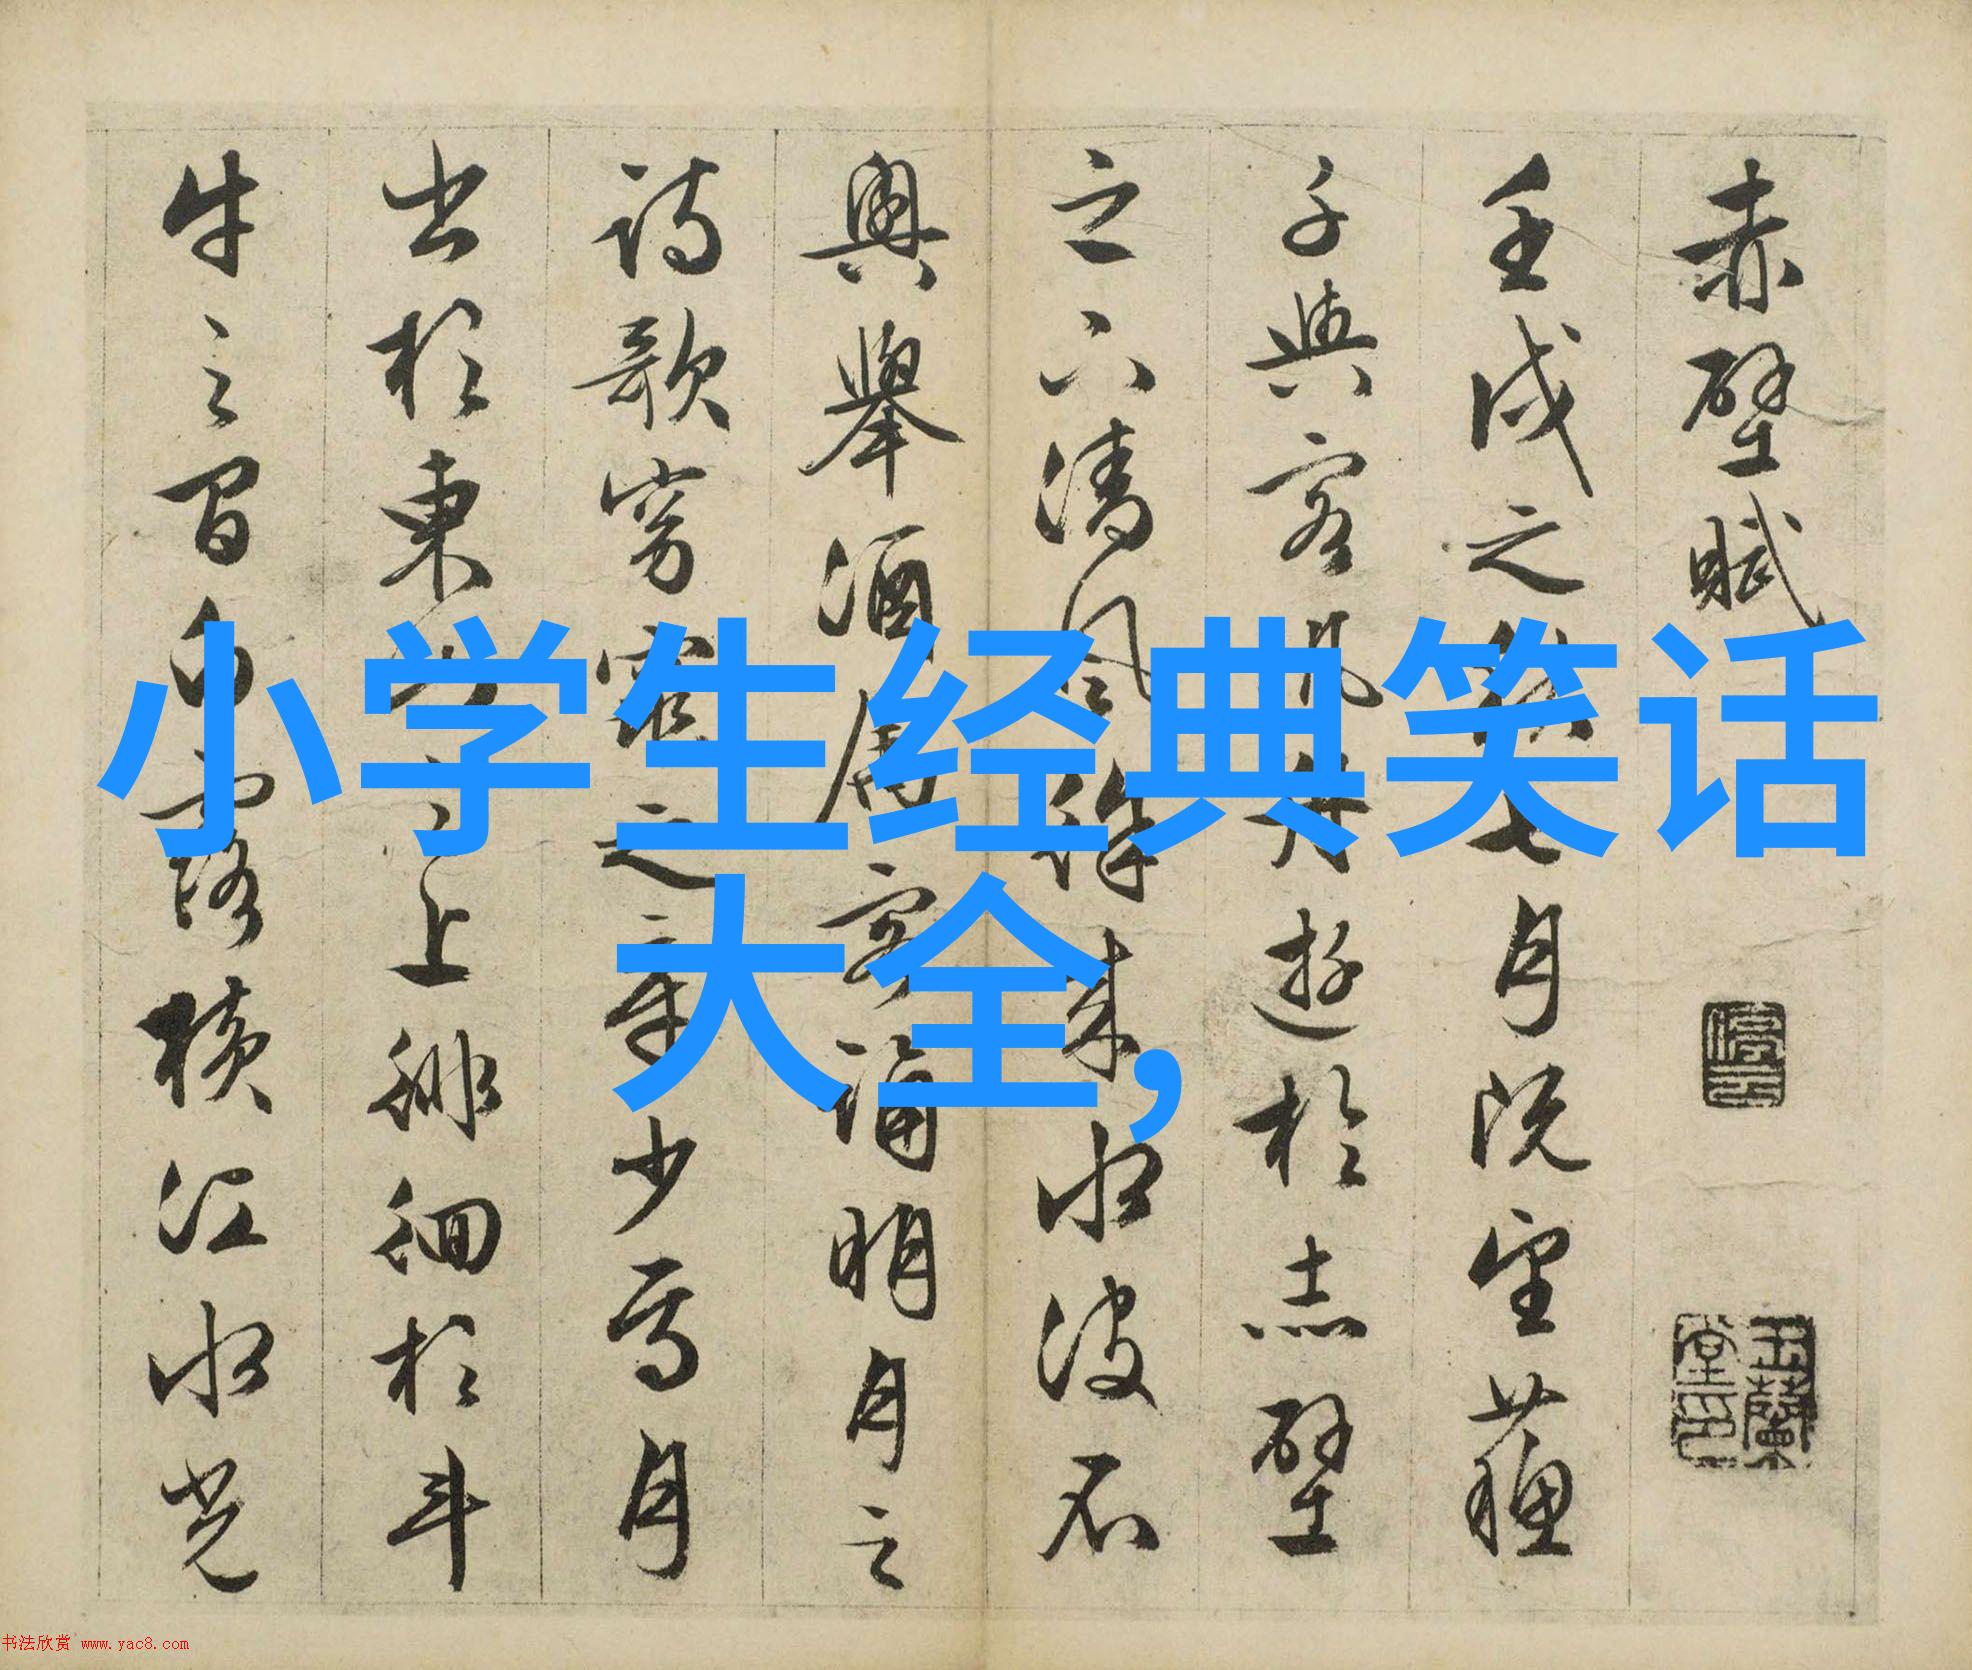 赤壁賦
壬戌之秋七月既望蘓
子與客汎舟遊於赤壁
之下清風徐来水波不
興舉酒属客誦明月之
詩歌窈窕之章少焉月
出於東山之上徘徊於斗
牛之間白露横江水光
停雲
玉蘭堂印
小学生经典笑话
大全,
书法欣赏 www.yac8.com